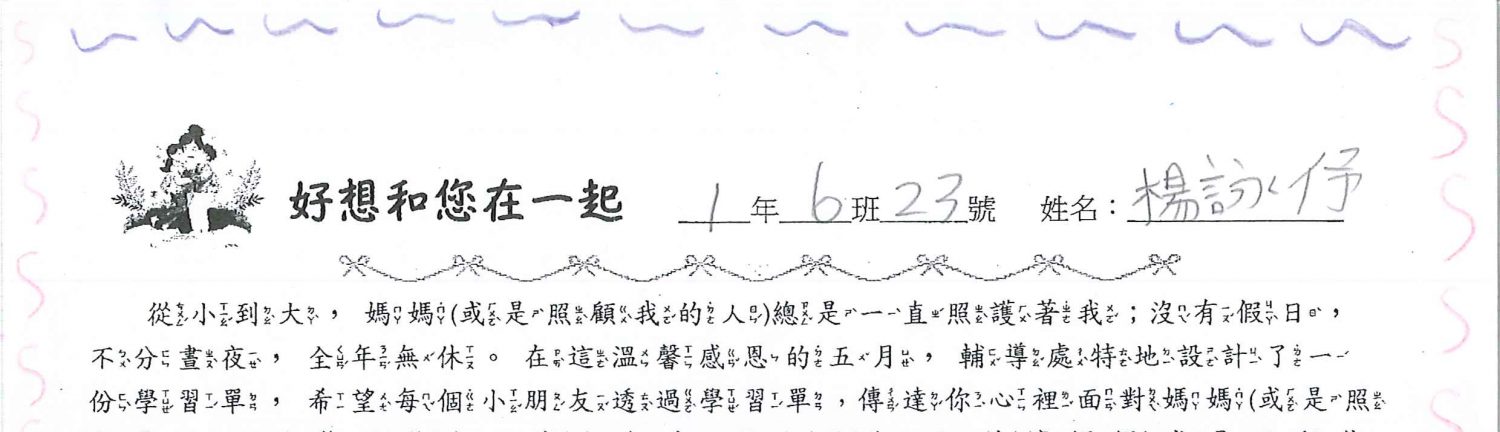 好想和您在一起 1年6班23號 姓名：楊詠伃
從小到大，媽媽(或是照顧我的人)總是一直照護著我；沒有假日，
不分晝夜，全年無休。在這溫馨感恩的五月，輔導處特地設計了一
份學習單，希望每個小朋友透過學習單，傳達你心裡面對媽媽(或是照